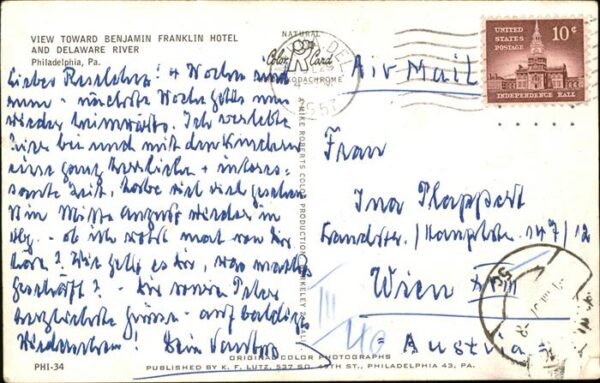 VIEW TOWARD BENJAMIN FRANKLIN HOTEL
AND DELAWARE RIVER
Philadelphia, Pa.
NATURAL
Color Card
KODACHROME
1957
UNITED STATES POSTAGE
10¢
INDEPENDENCE HALL
Air Mail
Lieber! 4 Wochen sind
nun - nächste Woche geht's nun
wieder heimwärts. Ich verlebte
hier bei und mit den Kindern
eine ganz herrliche + interes-
sante Zeit, habe viel viel gesehen
Mitte August wieder in
- ob ich wohl mal von Dir
höre? Wie geht es Dir, was macht
Geschäft? - Dir sowie Peter
herzlichste Grüsse - auf baldiges
Wiedersehen! Dein
MIKE ROBERTS COLOR PRODUCTIONS, BERKELEY 2, CALIF.
Frau
Ina Plappert
147/12
Wien XIII
Austria
PHI-34
ORIGINAL COLOR PHOTOGRAPHS
PUBLISHED BY K. F. LUTZ, 537 SO. 49TH ST., PHILADELPHIA 43, PA.